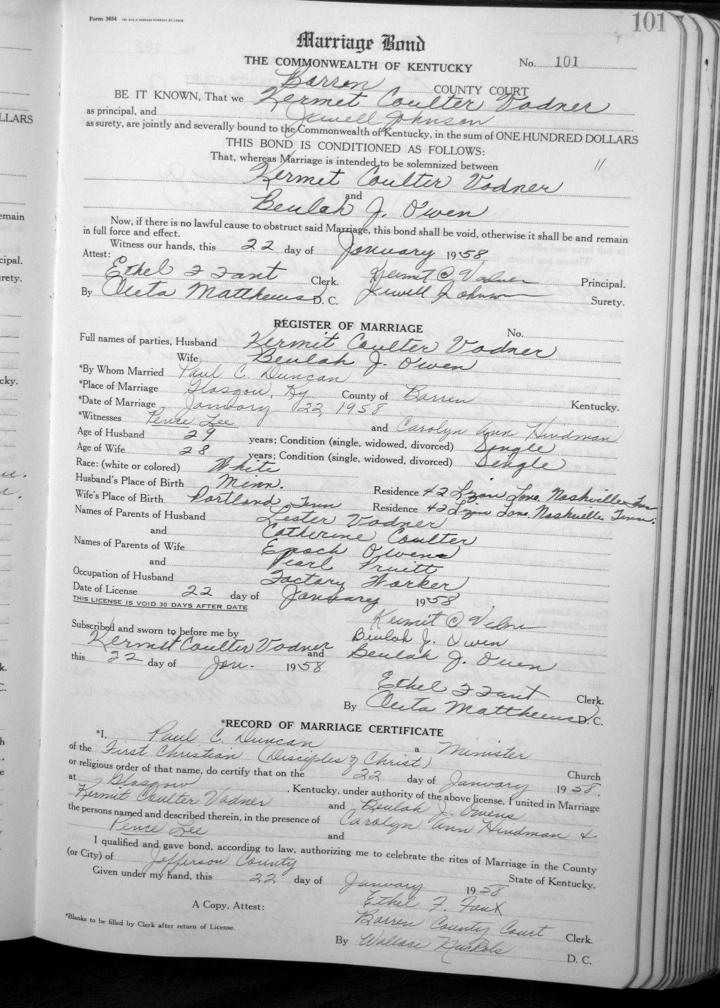 Form 3654
101
Marriage Bond
THE COMMONWEALTH OF KENTUCKY No. 101
Barren COUNTY COURT
BE IT KNOWN, That we Kermit Coulter Vadner
as principal, and Jewell Johnson
as surety, are jointly and severally bound to the Commonwealth of Kentucky, in the sum of ONE HUNDRED DOLLARS
THIS BOND IS CONDITIONED AS FOLLOWS:
That, whereas Marriage is intended to be solemnized between "
Kermit Coulter Vadner
and
Beulah J. Owen
Now, if there is no lawful cause to obstruct said Marriage, this bond shall be void, otherwise it shall be and remain
in full force and effect.
Witness our hands, this 22 day of January 1958.
Attest:
Ethel F Fant Clerk. Kermit C Vadner Principal.
By Cleta Matthews D. C. Jewell Johnson Surety.
REGISTER OF MARRIAGE No.
Full names of parties, Husband Kermit Coulter Vadner
Wife Beulah J. Owen
*By Whom Married Paul C. Duncan
*Place of Marriage Glasgow, Ky County of Barren Kentucky.
*Date of Marriage January 22 1958
*Witnesses Pence Lee and Carolyn Ann Hindman
Age of Husband 29 years; Condition (single, widowed, divorced) Single
Age of Wife 28 years; Condition (single, widowed, divorced) Single
Race: (white or colored) White
Husband's Place of Birth Minn. Residence 42 Lyon Nashville
Wife's Place of Birth Portland, Tenn Residence 42 Lyon Nashville Tenn.
Names of Parents of Husband Lester Vadner
and Catherine Coulter
Names of Parents of Wife Epoch Owens
and Pearl Pruitt
Occupation of Husband Factory Worker
Date of License 22 day of January 1958
THIS LICENSE IS VOID 30 DAYS AFTER DATE
Kermit C Vadner
Subscribed and sworn to before me by Beulah J. Owen
Kermit Coulter Vadner and Beulah J. Owen
this 22 day of Jan. 1958
Ethel F Fant Clerk.
By Cleta Matthews D. C.
*RECORD OF MARRIAGE CERTIFICATE
*I, Paul C. Duncan a Minister
of the First Christian (Disciples of Christ) Church
or religious order of that name, do certify that on the 22 day of January 1958.
at Glasgow, Kentucky, under authority of the above license, I united in Marriage
Kermit Coulter Vadner and Beulah J. Owens
the persons named and described therein, in the presence of Carolyn Ann Hindman &
Pence Lee and
I qualified and gave bond, according to law, authorizing me to celebrate the rites of Marriage in the County
(or City) of Jefferson County State of Kentucky.
Given under my hand, this 22 day of January 1958
A Copy, Attest: Ethel F Fant
Barren County Court Clerk.
*Blanks to be filled by Clerk after return of License.
By Wallace Nuckols D. C.